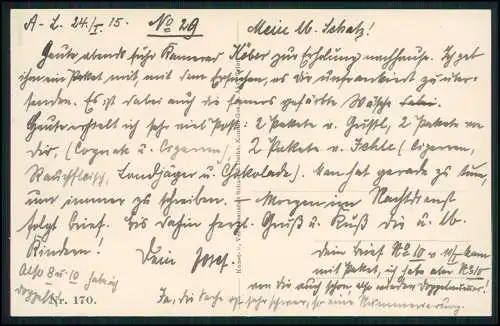 A-L. 24./I. 15. No 29 Mein lb. Schatz!
Heute abends fuhr Kamerad Köber zur Erholung nachhause. Ich gab
ihm ein Paket mit, mit dem Ersuchen, es Dir unfrankiert zu über-
senden. Es ist dabei auch die seinerz gefärbte Wäsche dabei.
Heute erhielt ich sehr viel Post. 2 Pakete v. Gristl, 2 Pakete von
dir, (Cognak u. Cigarren), 2 Pakete v. (Cigarren,
Rauchfleisch, Landjäger u. Chokolade). Man hat gerade zu tun,
um immer zu schreiben. – Morgen im Nachtdienst
folgt Brief. Bis dahin herzl. Gruß u. Kuß dir u. lb.
Kindern! Dein Josef.
dein Brief No 10 v. kam
mit Paket, ich habe aber No 10
von dir auch schon also wieder Doppelnummer!
Also 8 u. 10 habe ich
doppelt
Nr. 170.
Ja, die Sache ist sehr schwer, so eine Nummerierung.